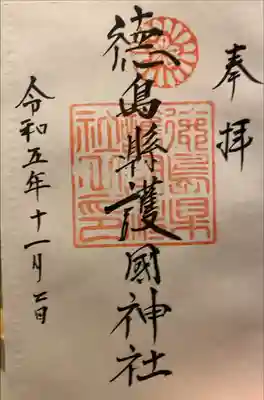 奉拝
徳島縣護國神社
徳島県
社之印
令和五年十一月七日